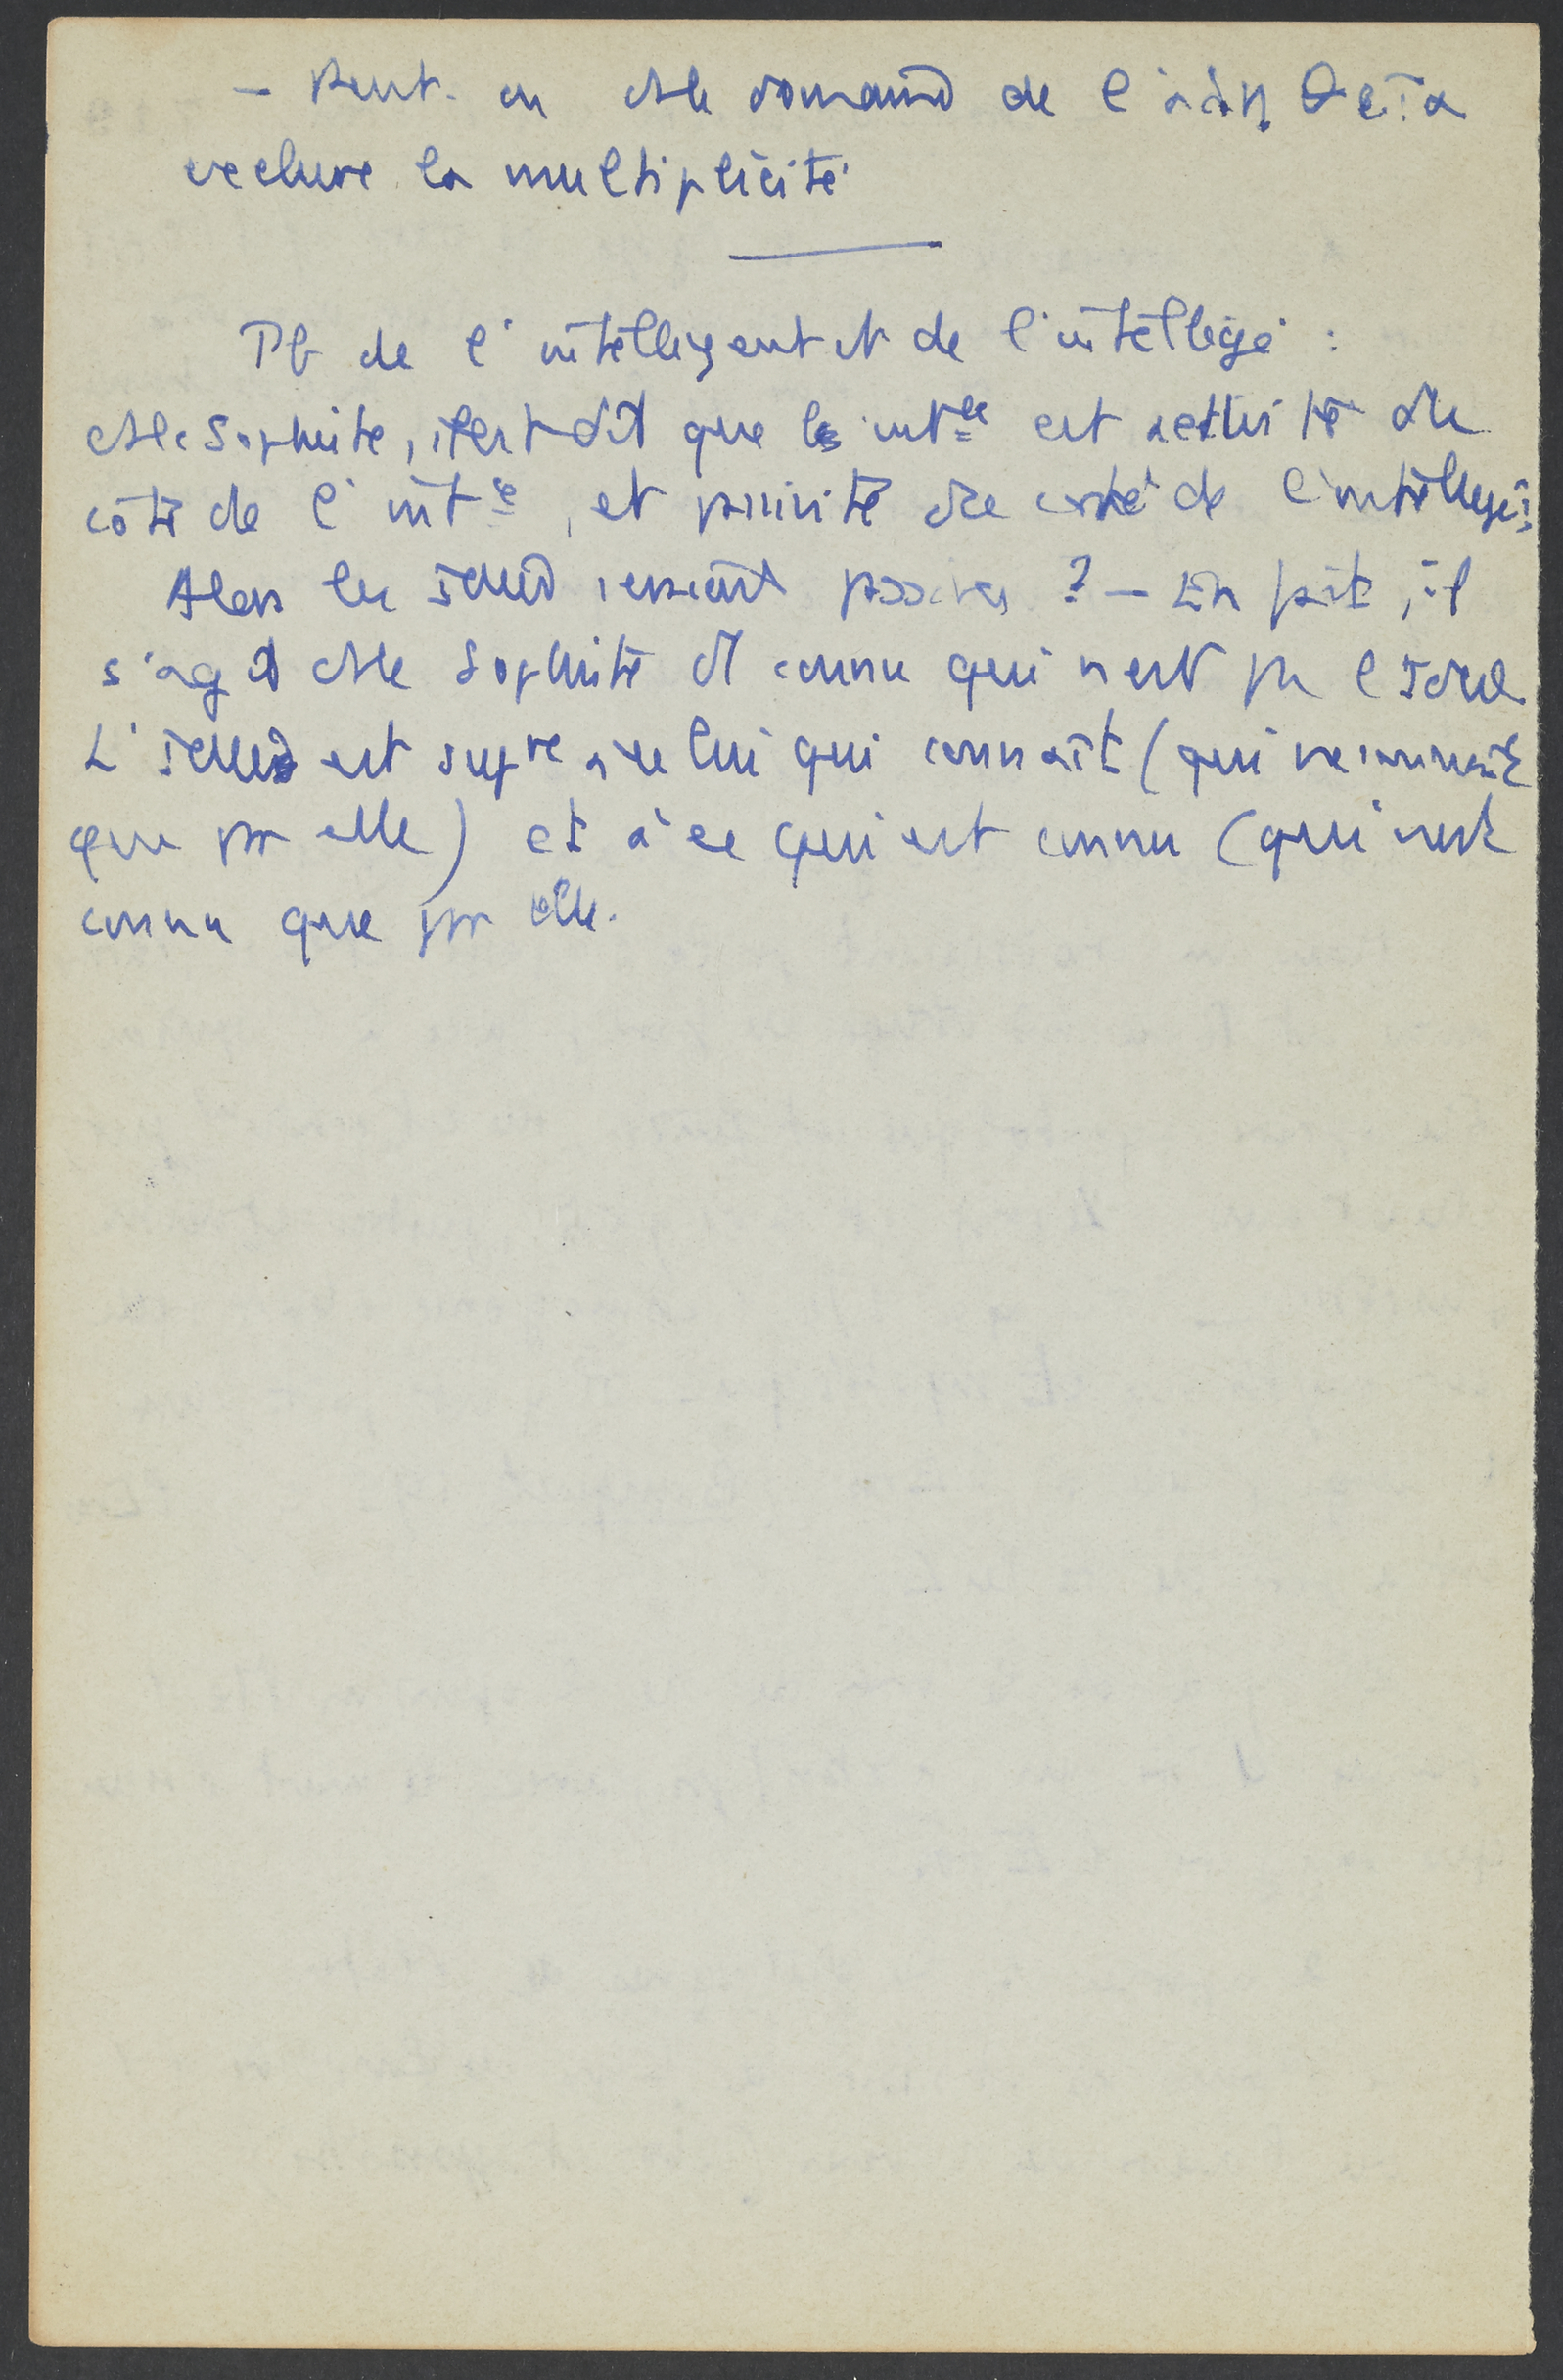 - Peut-on ds le domaine de l'ἀίδια θεῖα
exclure la multiplicité
Pb de l'intelligent et de l'intelligé :
ds le Sophiste, il est dit que l'int^ce est activité du
côté de l'int^ce, et passivité du côté de l'intelligé.
Alors les idées seraient passives ? - En fait, il
s'agit ds le Sophiste d'1 connu qui n'est pas l'idée.
L'idée est sup^re à celui qui connaît (qui ne connaît
que par elle) et à ce qui est connu (qui n'est
connu que par elle.